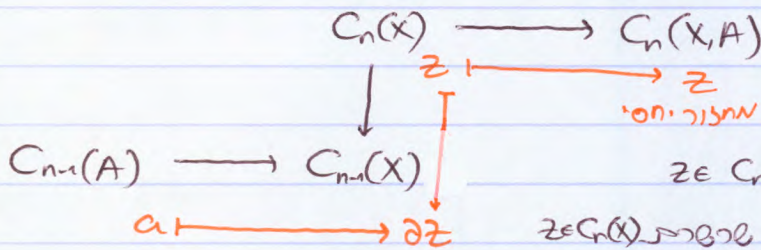 C_n(X) ⟶ C_n(X,A)
z ⟼ z
מחזור יחסי
C_{n-1}(A) ⟶ C_{n-1}(X)
z ∈ C_n
a ⟼ ∂z
z∈C_n(X)